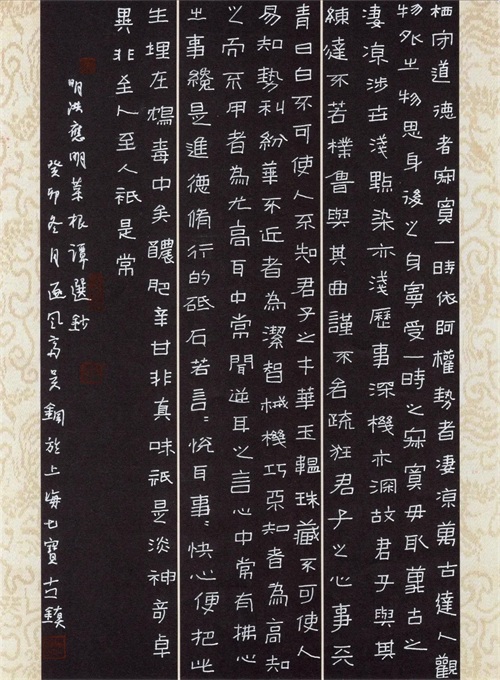 栖守道德者寂寞一時依阿權勢者淒涼萬古達人觀
物外之物思身後之身寧受一時之寂寞毋取萬古之
淒涼涉世淺點染亦淺歷事深機亦深故君子與其
練達不若樸魯與其曲謹不若疏狂君子之心事天
青日白不可使人不知君子之才華玉韞珠藏不可使人
易知勢利紛華不近者為潔智械機巧不知者為高知
之而不用者為尤高耳中常聞逆耳之言心中常有拂心
之事纔是進德脩行的砥石若言〻悅耳事〻快心便把此
生埋在鴆毒中矣醲肥辛甘非真味祇是淡神奇卓
異非至人至人祇是常
明洪應明菜根譚選鈔
癸卯冬月逐風斋吳鋼於上海七寶古鎮